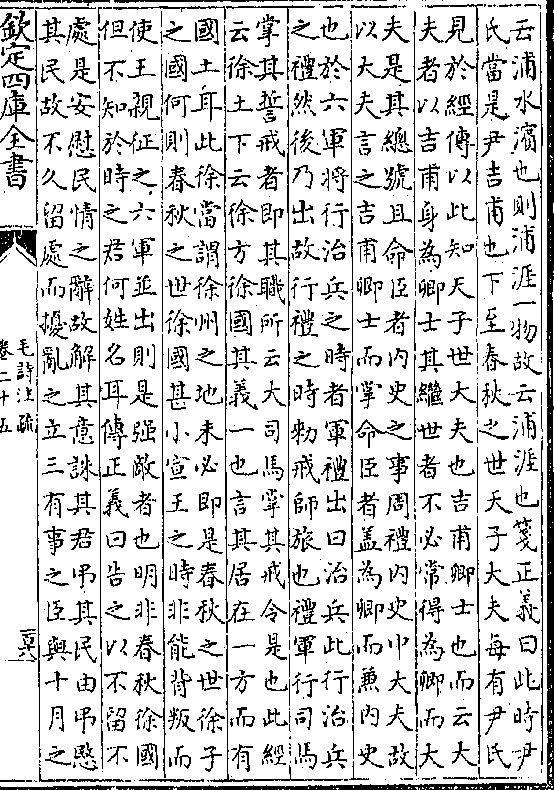 云浦水濱也則浦涯一物故云浦涯也箋正義曰此時尹
氏當是尹吉甫也下至春秋之世天子大夫每有尹氏
見於經傳以此知天子世大夫也吉甫卿士也而云大
夫者以吉甫身為卿士其繼世者不必常得為卿而大
夫是其總號且命臣者內史之事周禮內史中大夫故
以大夫言之吉甫卿士而掌命臣者蓋為卿而兼內史
也於六軍將行治兵之時者軍禮出曰治兵此行治兵
之禮然後乃出故行禮之時勑戒師旅也禮軍行司馬
掌其誓戒者即其職所云大司馬掌其戒令是也此經
云徐土下云徐方徐國其義一也言其居在一方而有
國土耳此徐當謂徐州之地未必即是春秋之世徐子
之國何則春秋之世徐國甚小宣王之時非能背叛而
使王親征之六軍並出則是强敵者也明非春秋徐國
但不知於時之君何姓名耳傳正義曰告之以不留不
處是安慰民情之辭故解其意誅其君弔其民由弔愍
其民故不久留處而擾亂之立三有事之臣與十月之
欽定四庫全書
毛詩注疏
卷二十五